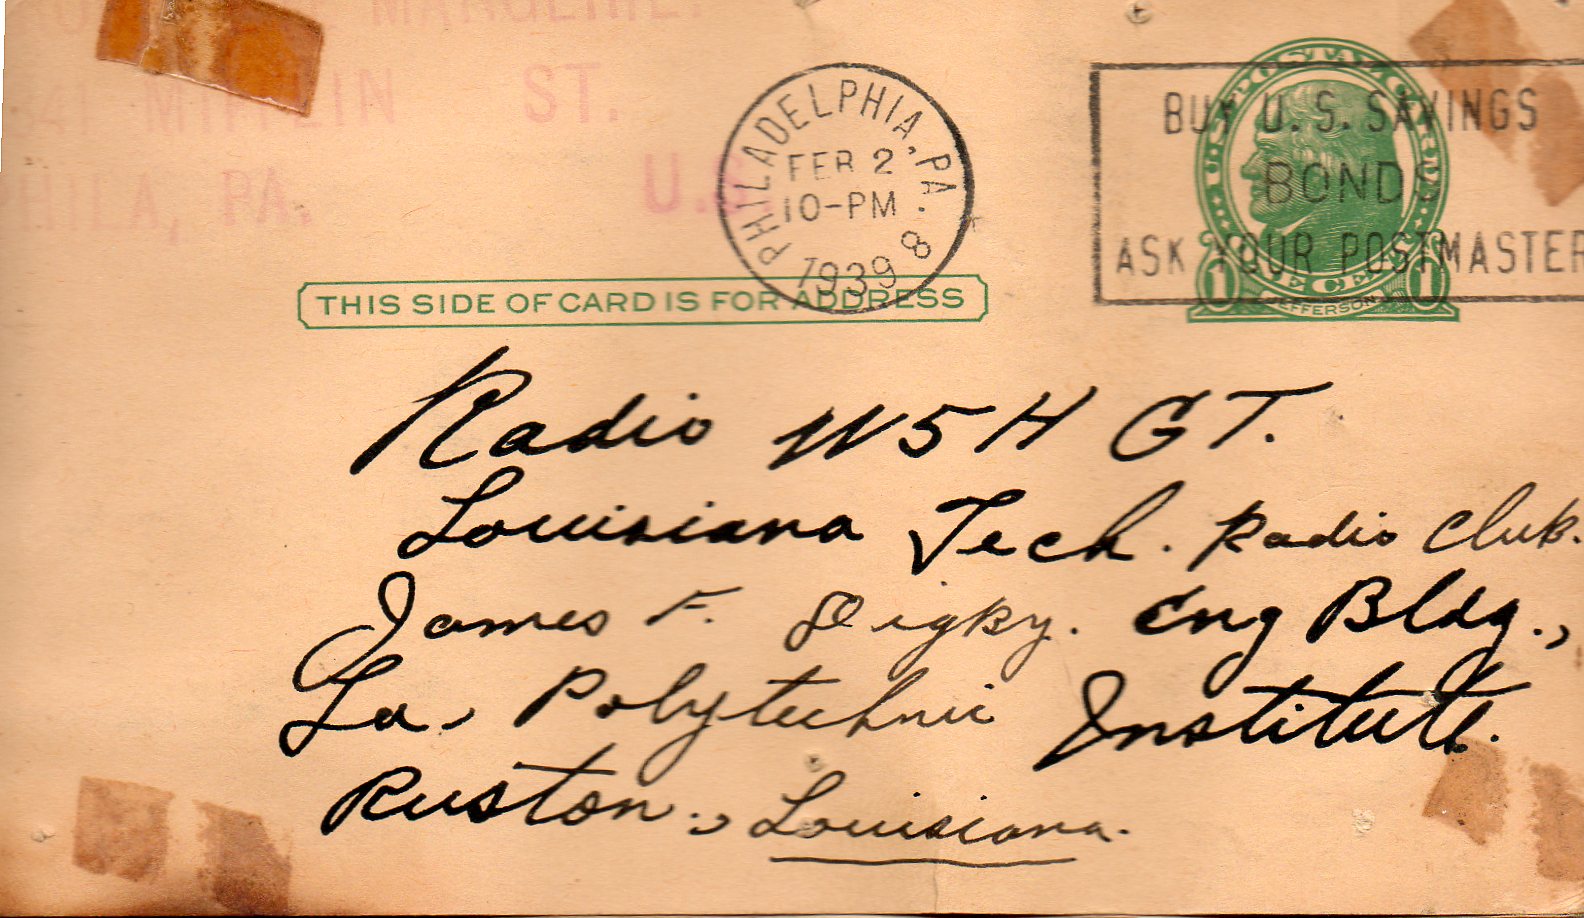 MIFFLIN ST.
PHILA, PA. U.S.
PHILADELPHIA, PA.
FEB 2
10-PM
1939
8
U.S. POSTAL CARD
BUY U.S. SAVINGS
BONDS
ASK YOUR POSTMASTER
ONE CENT
JEFFERSON
THIS SIDE OF CARD IS FOR ADDRESS
Radio W5HGT.
Louisiana Tech. Radio Club.
James F. Digby. Eng Bldg.,
La. Polytechnic Institute.
Ruston., Louisiana.